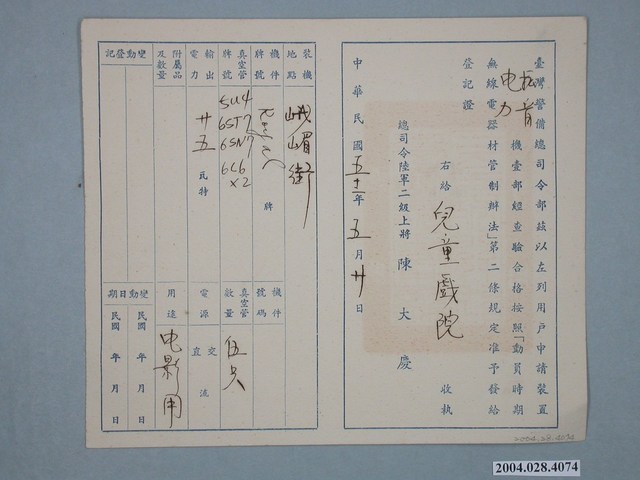 臺灣警備總司令部茲以左列用戶申請裝置
电力 机壹部經查驗合格按照「動員時期
無線電器材管制辦法」第二條規定准予發給
登記證
右給 兒童戲院 收執
總司令陸軍二級上將 陳大慶
中華民國五十二年五月廿日
裝機地點 峨嵋街
機件牌號 牌
機件號碼
真空管牌號 5U4 6SJ7 6SN7 6L6 X2
真空管數量 伍只
輸出電力 廿五瓦特
電源 交直流
附屬品及數量
用途 电影用
變動登記
變動日期
民國 年 月 日
民國 年 月 日
2004.028.4074
2004.028.4074